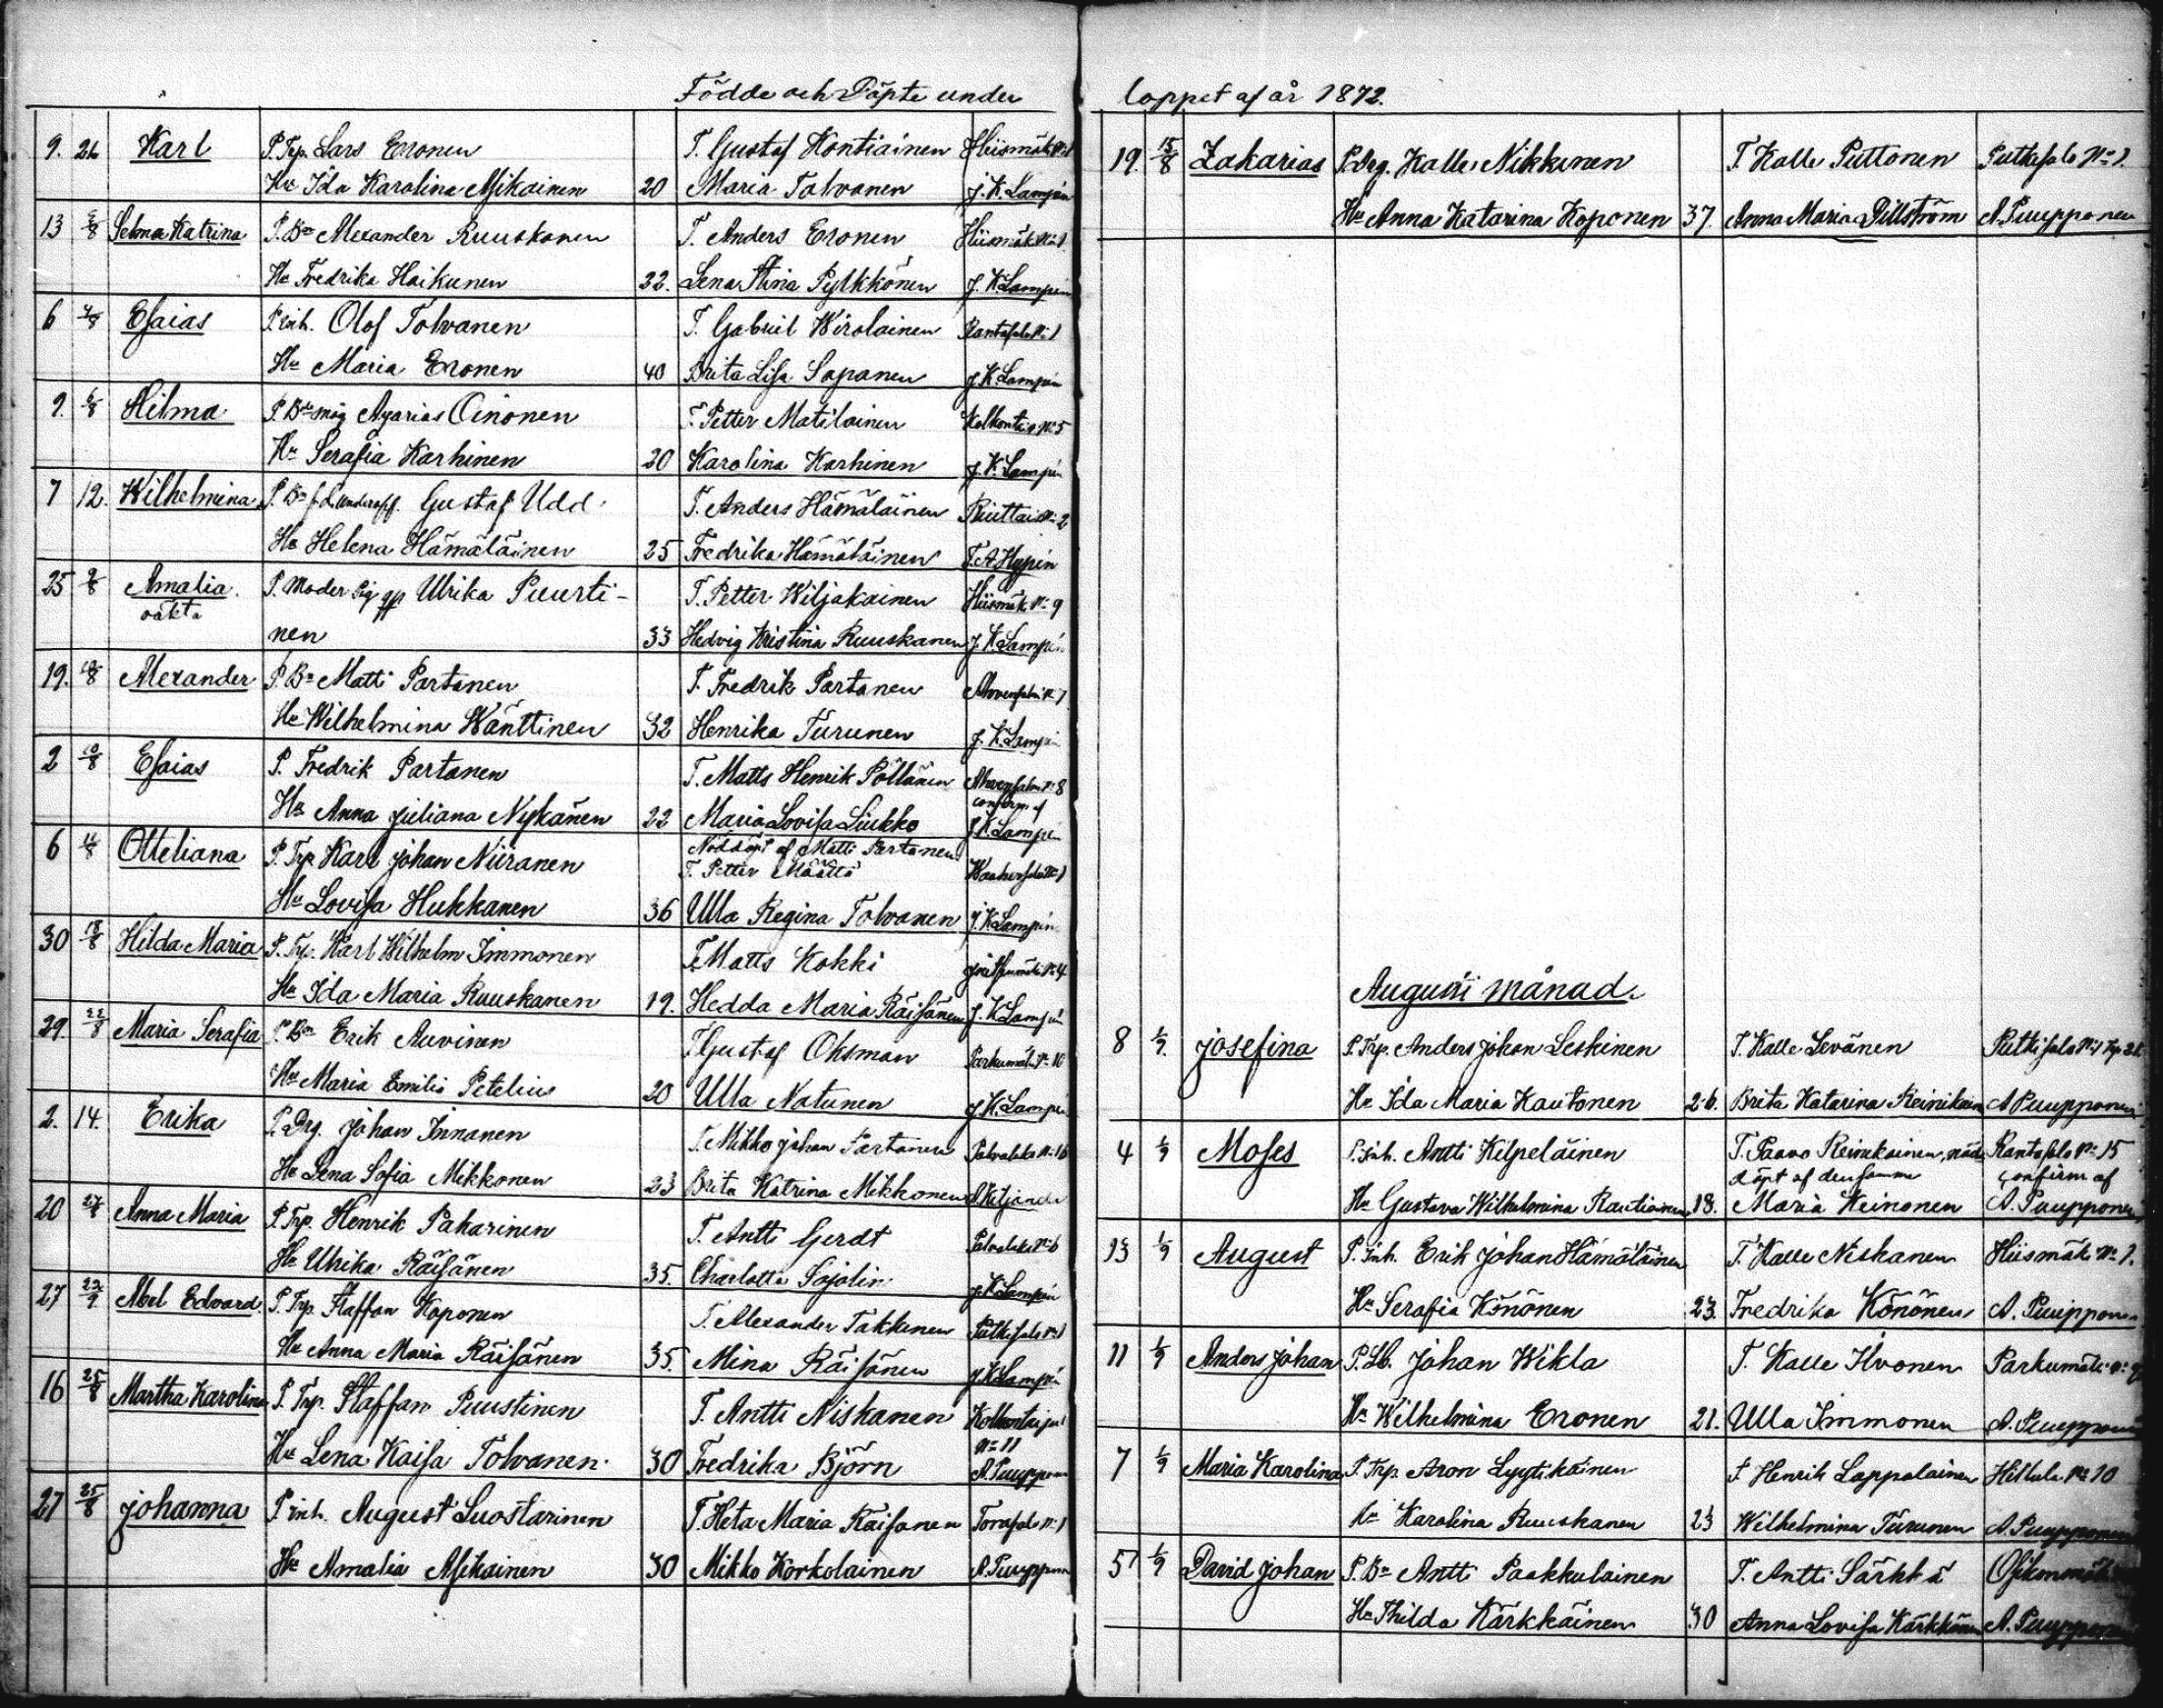 Födde och Döpte under
9. 26 Karl P. Trp. Lars Eronen T. Gustaf Kontiainen Hiismäki
Hu Ida Karolina Asikainen 20 Maria Tolvanen J. K. Lampén
13 Selma Katrina P. Bn Alexander Ruuskanen T. Anders Eronen Hiismäk No 1
Hu Fredrika Haikunen 22. Lena Stina Pylkkönen J. K. Lampén
6 4/8 Esaias P. inh. Olof Tolvanen T. Gabriel Wirolainen Rantasalo No 1
Hu Maria Eronen 40 Brita Lisa Sapanen J. K. Lampén
9. 6/8 Hilma P. Bde måg Asarias Oinonen T. Petter Matilainen No 5
Hu Serafia Karhinen 20 Karolina Karhinen J. K. Lampén
7 12. Wilhelmina P. Bn f.d. underoff. Gustaf Udd T. Anders Hämäläinen No 2
Hu Helena Hämäläinen 25 Fredrika Hämäläinen T. A. Hypén
25 9/8 Amalia P. Moder Pig Ulrika Puurti- T. Petter Wiljakainen Hiismäk No 9
oäkta nen 33 Hedvig Kristina Ruuskanen J. K. Lampén
19. Alexander P. Bn Matti Partanen T. Fredrik Partanen Ahvensalmi No 7
Hu Wilhelmina Wänttinen 32 Henrika Turunen J. K. Lampén
2 10/8 Esaias P. Fredrik Partanen T. Matts Henrik Pöllänen Ahvensalmi No 8
confirm. af
Hu Anna Juliana Nykänen 22 Maria Lovisa Liukko J. K. Lampén
Nöddöpt af Matti Partanen
6 Otteliana P. Trp Karl Johan Niiranen T. Petter Määttä
Hu Lovisa Hukkanen 36 Ulla Regina Tolvanen J. K. Lampén
30 18/8 Hilda Maria P. Trp. Karl Wilhelm Immonen T. Matts Kokki No 4
Hu Ida Maria Ruuskanen 19. Hedda Maria Räisänen J. K. Lampén
29. 22/8 Maria Serafia P. Bn Erik Auvinen T. Gustaf Ohsman Parkumäki No 10
Hu Maria Emilia Petelius 20 Ulla Natunen J. K. Lampén
2. 14. Erika P. Drg. Johan Innanen T. Mikko Johan Partanen No 16
Hu Lena Sofia Mikkonen 23 Brita Katrina Mikkonen
20 27/8 Anna Maria P. Trp. Henrik Pakarinen T. Antti Gerdt No 6
Hu Ulrika Räisänen 35. Charlotta Sajolin J. K. Lampén
27 22/9 Abel Edvard P. Trp. Staffan Koponen T. Alexander Takkunen Putkisalo No 1
Hu Anna Maria Räisänen 35. Mina Räisänen J. K. Lampén
16 25/8 Martha Karolina P. Trp. Staffan Puustinen T. Antti Niskanen
No 11
Hu Lena Kaisa Tolvanen 30 Fredrika Björn A. Puupponen
27 25/8 Johanna P. inh. August Luostarinen T. Heta Maria Räisänen No 1
Hu Amalia Asikainen 30 Mikko Korkolainen A. Puupponen
loppet af år 1872.
19. 15/8 Zakarias P. Drg. Kalle Nikkunen T. Kalle Puttonen Putkisalo No 1.
Hu Anna Katarina Koponen 37. Anna Maria Dillström A. Puupponen
Augusti månad.
8 1/9. Josefina P. Trp. Anders Johan Leskinen T. Kalle Levänen Putkisalo No 1
Hu Ida Maria Kautonen 26. Brita Katarina Reinikain A. Puupponen
4 1/9 Moses P. inh. Antti Kilpeläinen T. Paavo Reinikainen, nöd Rantasalo No 15
döpt af densamme confirm af
Hu Gustava Wilhelmina Rautiainen 18. Maria Keinonen A. Puupponen
13 1/9 August P. inh. Erik Johan Hämäläinen T. Kalle Niskanen Hiismäk No 1.
Hu Serafia Könönen 23. Fredrika Könönen A. Puupponen
11 1/9 Anders Johan P. Lb. Johan Wikla T. Kalle Ilvonen Parkumäki No
Hu Wilhelmina Eronen 21. Ulla Immonen A. Puupponen
7 1/9 Maria Karolina P. Trp. Aron Lyytikäinen T Henrik Lappalainen Hiltula No 10
Hu Karolina Ruuskanen 23 Wilhelmina Turunen A. Puupponen
5 1/9 David Johan P. Bn Antti Paakkulainen T. Antti Särkkä
Hu Thilda Kärkkäinen 30 Anna Lovisa Kärkkänen A. Puupponen